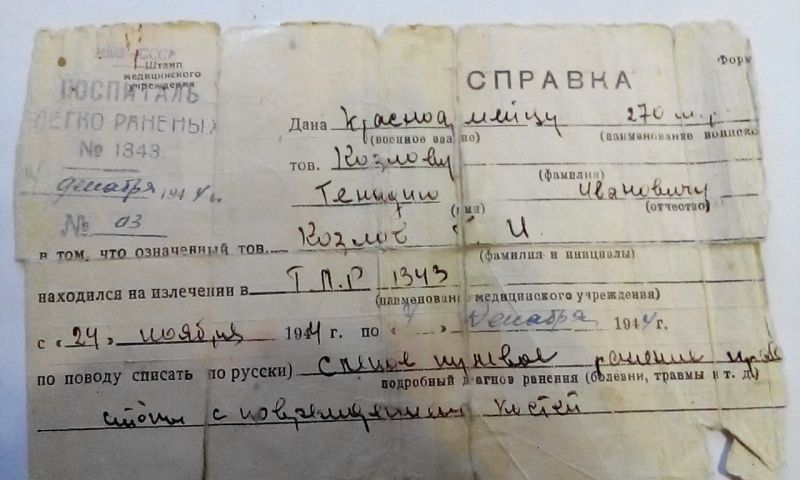 НКО СССР
Штамп
медицинского
учреждения
ГОСПИТАЛЬ
ЛЕГКО РАНЕНЫХ
№ 1343
декабря 1944 г.
№ 03
Форм
СПРАВКА
Дана Красноармейцу 270
(военное звание) (наименование воинско
тов. Козлову
(фамилия)
Генадию Ивановичу
(имя) (отчество)
в том, что означенный тов. Козлов Г. И.
(фамилия и инициалы)
находился на излечении в Г Л Р 1343
(наименование медицинского учреждения)
с «24» ноября 1944 г. по « » декабря 1944 г.
по поводу списать по русски) Слепое пулевое ранение
подробный диагноз ранения (болезни, травмы и т. д.)
стопы с повреждением костей